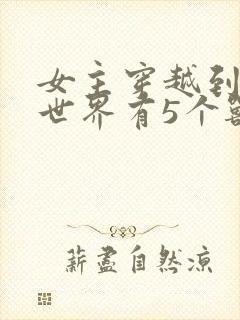 女主穿越到
世界有5个
薪尽自然凉